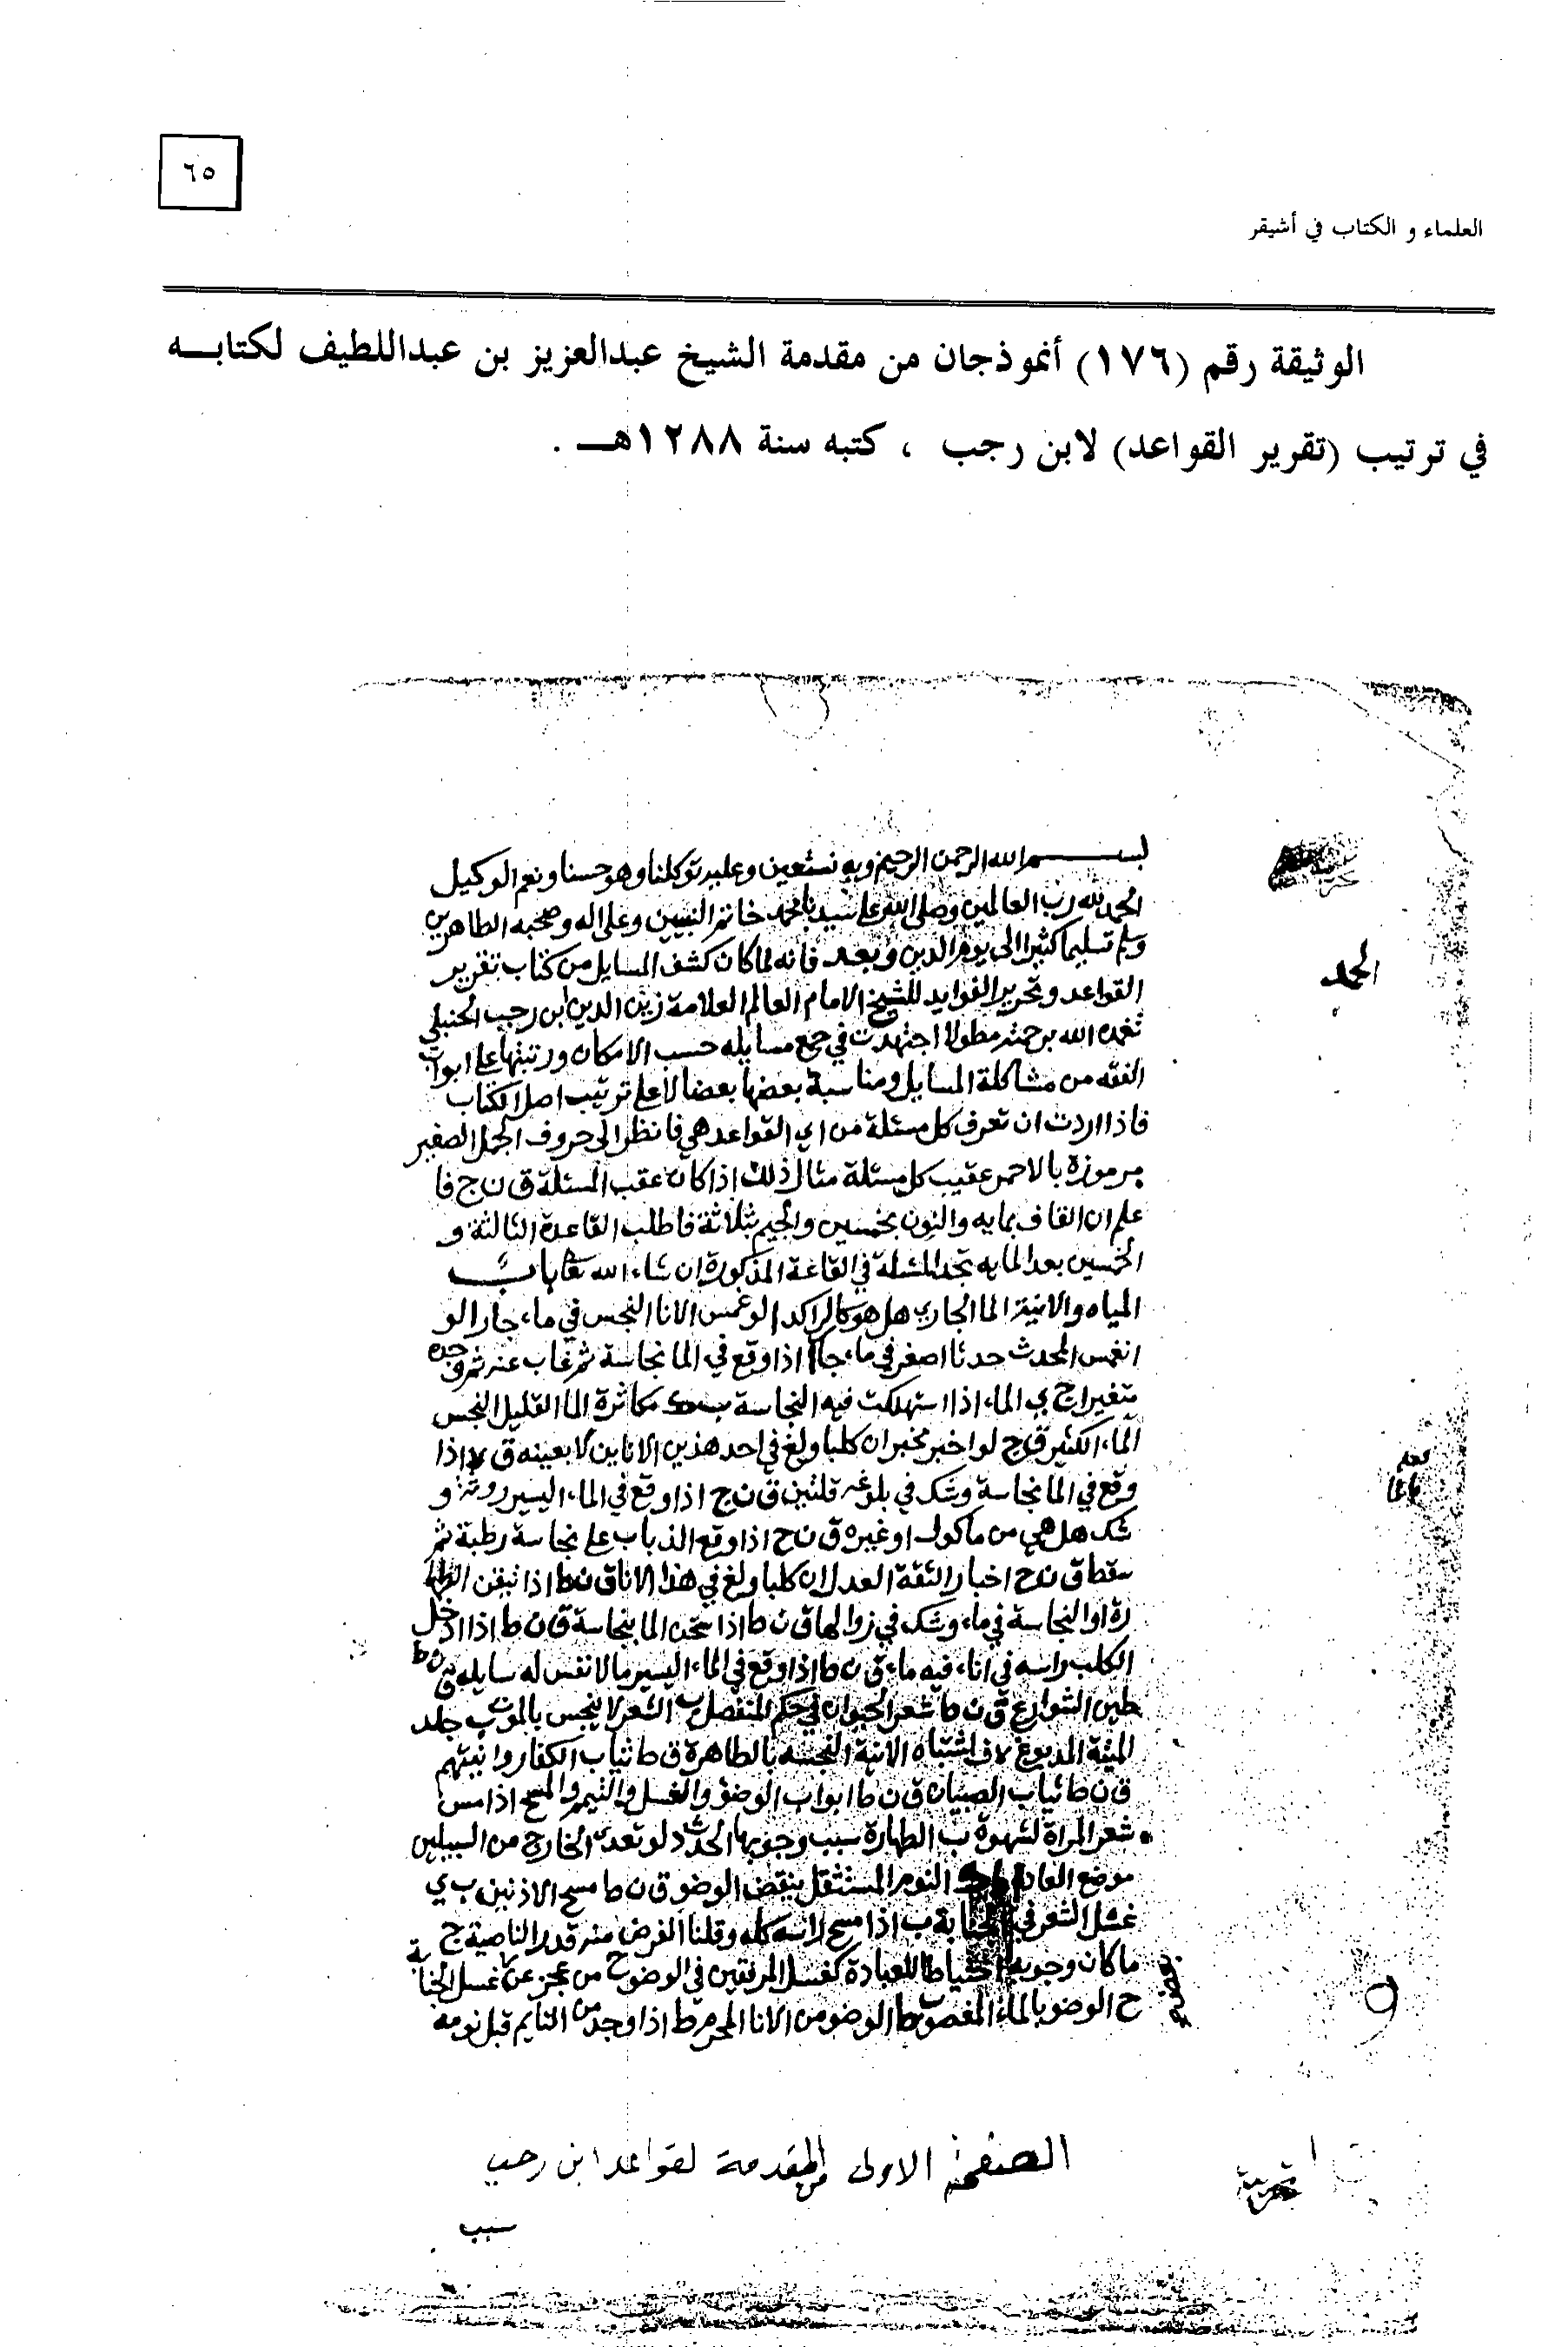 ٦٥
العلماء و الكتاب في أشيقر
الوثيقة رقم (١٧٦) أنموذجان من مقدمة الشيخ عبدالعزيز بن عبداللطيف لكتابـــه
في ترتيب (تقرير القواعد) لابن رجب ، كتبه سنة ١٢٨٨هـــ .
بســــــم الله الرحمن الرحيم وبه نستعين وعليه توكلنا وهو حسبنا ونعم الوكيل
الحمد لله رب العالمين وصلى الله على سيدنا محمد خاتم النبيين وعلى اله وصحبه الطاهرين
وسلم تسليما كثيرا الى يوم الدين وبعد فانه لما كان كشف المسايل من كتاب تقرير
الحمد
القواعد وتحرير الفوايد للشيخ الامام العالم العلامة زين الدين ابن رجب الحنبلي
تغمده الله برحمته مطولا اجتهدت في جمع مسايله حسب الامكان ورتبتها على ابواب
الفقه من مشاكلة المسايل ومناسبة بعضها بعضا لا على ترتيب اصل الكتاب
فاذا اردت ان تعرف كل مسئلة من اي القواعد هي فانظر الى حروف الجمل الصغير
مرموزة بالاحمر عقيب كل مسئلة مثال ذلك اذا كان عقب المسئلة ق ن ج فا
علم ان القاف بمايه والنون بخمسين والجيم بثلاثة فاطلب القاعدة الثالثة و
الخمسين بعد المايه تجد المسئلة في القاعة المذكورة ان شاء الله تعا باب
المياه والانية الما الجاري هل هو كالراكد ا لو غمس الانا النجس في ماء جار ا لو
انغمس المحدث حدثا اصغر في ماء جار ا اذا وقع في الما نجاسة ثم غاب عنه ثم وجده
متغيرا ج ي الماء اذا استهلكت فيه النجاسة مكاثرة الما القليل النجس
الماء الكثير ق ج لو اخبر مخبر ان كلبا ولغ في احد هذين الاناين لا بعينه ق اذا
وقع في الما نجاسة وشك في بلوغه قلتين ق ن ج اذا وقع في الماء اليسير روثة و
شك هل هي من ماكول او غيره ق ن ح اذا وقع الذباب على نجاسة رطبة ثم
سقط ق ن ح اخبار الثقة العدل ان كلبا ولغ في هذا الانا ق ن ط اذا تيقن الطها
رة او النجاسة في ماء وشك في زوالها ق ن ط اذا سخن الما بنجاسة ق ن ط اذا ادخل
الكلب راسه في اناء فيه ماء ق ن ط اذا وقع في الماء اليسير ما لا نفس له سايله ق ن ط
طين الشوارع ق ن ط شعر الحيوان في حكم المنفصل ب الشعر لا ينجس بالموت ب جلد
الميتة المدبوغ اشتباه الانية النجسه بالطاهرة ق ط ثياب الكفار وانيتهم
ق ن ط ثياب الصبيان ق ن ط ابواب الوضؤ والغسل والتيمم والمسح اذا مس
شعر المراة لشهوة ب الطهارة سبب وجوبها الحدث د لو تعدى الخارج من السبيلين
موضع العادة النوم المستثقل ينقض الوضو ق ن ط مسح الاذنين ب ي
غسل الشعر في الجنابة ب اذا مسح راسه كله وقلنا الفرض منه قدر الناصية ج
ما كان وجوبه احتياطا للعبادة كغسل المرفقين في الوضوح من عجز عن غسل الجنابة
ح الوضو بالماء المغصوب ط الوضو من الانا المحرم ط اذا وجد من النايم قبل نومه
الصفحة الاولى من المقدمة لقواعد ابن رجب
سبب